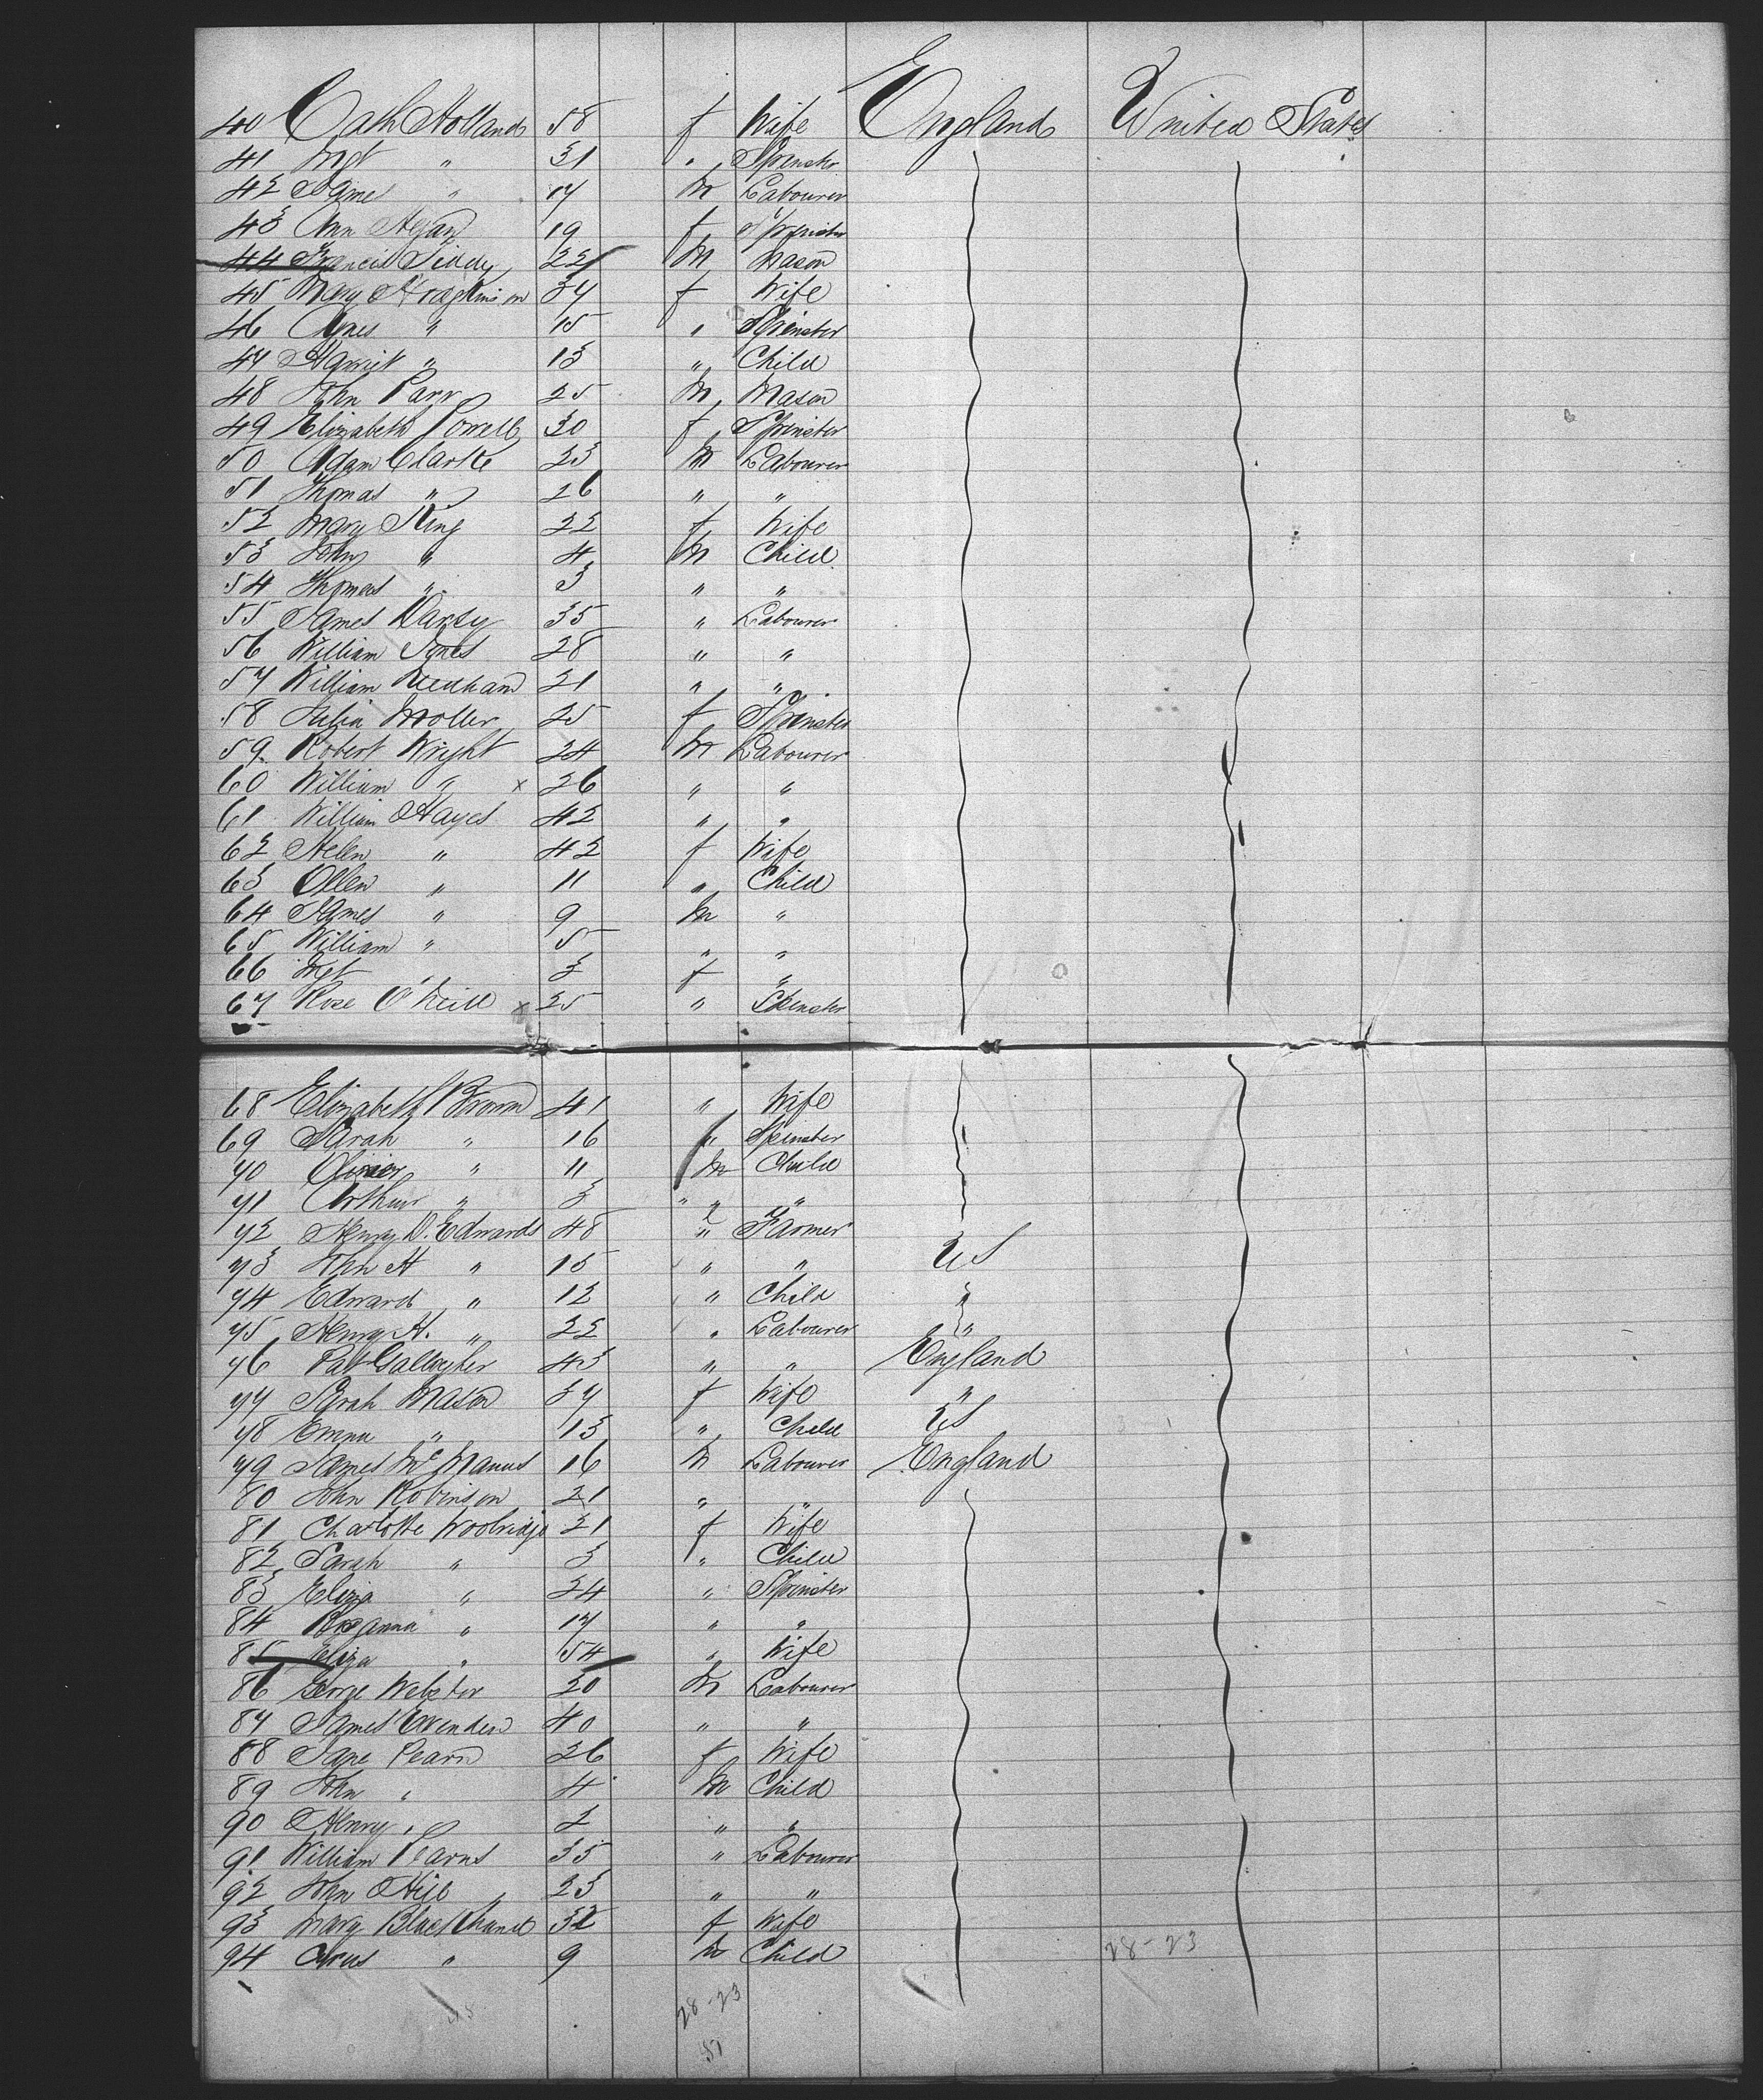 40 Cath Holland 58 f Wife England United States
41 Mgt " 31 " Spinster
42 James " 17 m Labourer
43 Ann 19 f Spinster
44 Francis 22 m Mason
45 Mary Hodgkinson 37 f Wife
46 Agnes " 15 " Spinster
47 Harriet " 13 " Child
48 John Parr 25 m Mason
49 Elizabeth Powell 30 f Spinster
50 Adam Clarke 23 m Labourer
51 Thomas " 26 " "
52 Mary King 22 f Wife
53 John " 4 m Child
54 Thomas " 3 " "
55 James Darcy 35 " Labourer
56 William Jones 28 " "
57 William Needham 21 " "
58 Julia Moller 25 f Spinster
59 Robert Wright 24 m Labourer
60 William " x 26 " "
61 William Hayes 42 " "
62 Helen " 42 f Wife
63 Ellen " 11 " Child
64 James " 9 m "
65 William " 5 " "
66 Mgt " 3 f "
67 Rose O'Neill x 25 " Spinster
68 Elizabeth Brown 41 " Wife
69 Sarah " 16 " Spinster
70 " 11 m Child
71 Arthur " 3 " "
72 Henry D. Edwards 48 " Farmer
73 John H " 15 " " US
74 Edward " 12 " Child "
75 Henry H. " 22 " Labourer "
76 Pat Gallagher 43 " " England
77 Sarah Mason 37 f Wife "
78 Emma " 13 " Child US
79 James McManus 16 m Labourer England
80 John Robinson 21 " "
81 Charlotte Woolridge 21 f Wife
82 Sarah " 3 " Child
83 Eliza " 24 " Spinster
84 Rosanna " 17 " "
85 Eliza " 54 " Wife
86 George Webster 20 m Labourer
87 James 40 " "
88 Jane Pearn 26 f Wife
89 John " 4 m Child
90 Henry " 2 " "
91 William Pearns 35 " Labourer
92 John Hill 23 " "
93 Mary Blackhand 32 f Wife
94 " 9 m Child
28-23
28-23
51